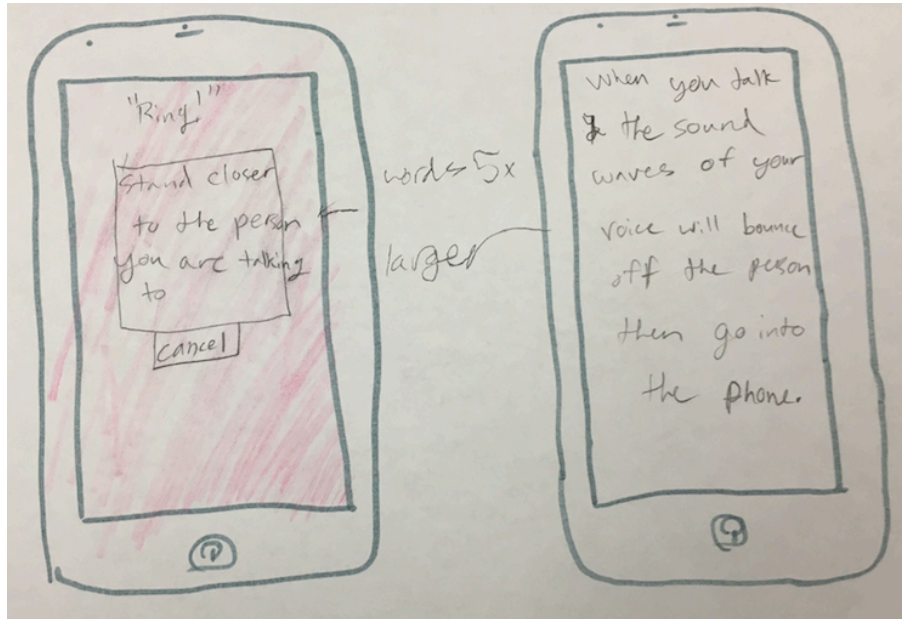 "Ring!"
Stand closer
to the person
you are talking
to
cancel
words 5x
larger
When you talk
the sound
waves of your
voice will bounce
off the person
then go into
the phone.